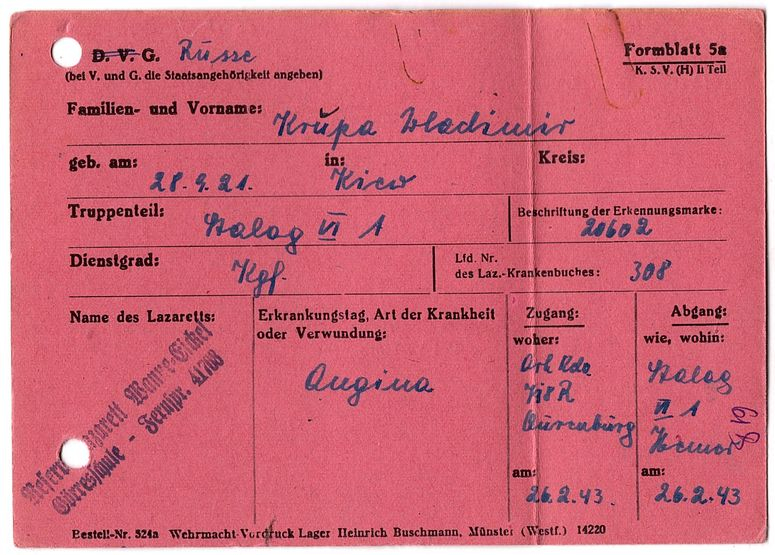 D. V. G. Russe
(bei V. und G. die Staatsangehörigkeit angeben)
Formblatt 5a
K. S. V. (H) II Teil
Familien- und Vorname: Krupa Wladimir
geb. am: 28.9.21. in: Kiew Kreis:
Truppenteil: Stalag VI A
Beschriftung der Erkennungsmarke: 20602
Dienstgrad: Kgf.
Lfd. Nr.
des Laz.-Krankenbuches: 308
Name des Lazaretts:
Wanne-Eickel
Görresschule - Fernspr. 41708
Erkrankungstag, Art der Krankheit
oder Verwundung:
Angina
Zugang:
woher:
Arb Kdo
R
am:
26.2.43.
Abgang:
wie, wohin:
Stalag
VI A
Hemer
am:
26.2.43
619
Bestell-Nr. 324a Wehrmacht-Vordruck Lager Heinrich Buschmann, Münster (Westf.) 14220